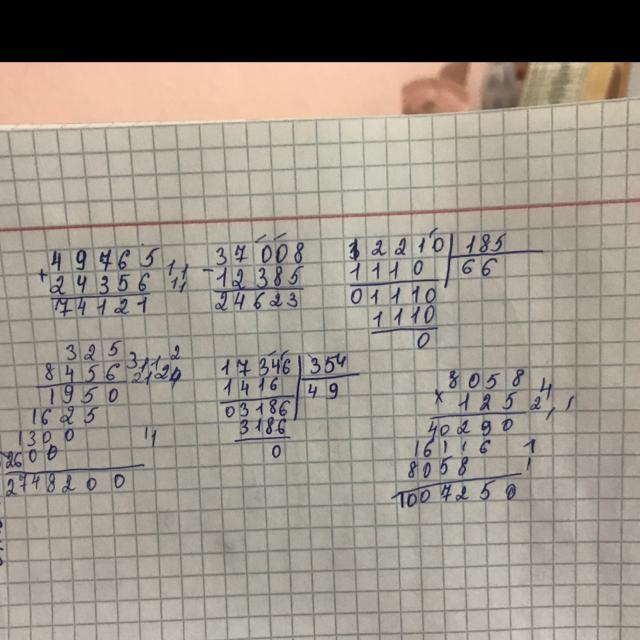 49765
+ 24356
74121
1 1
1 1
37008
- 12385
24623
12210 | 185
1110 | 66
01110
1110
0
325
8456
1950
1625
1300
2600
2748200
17346 | 354
1416 | 49
03186
3186
0
8058
× 125
40290
16116
8058
1007250